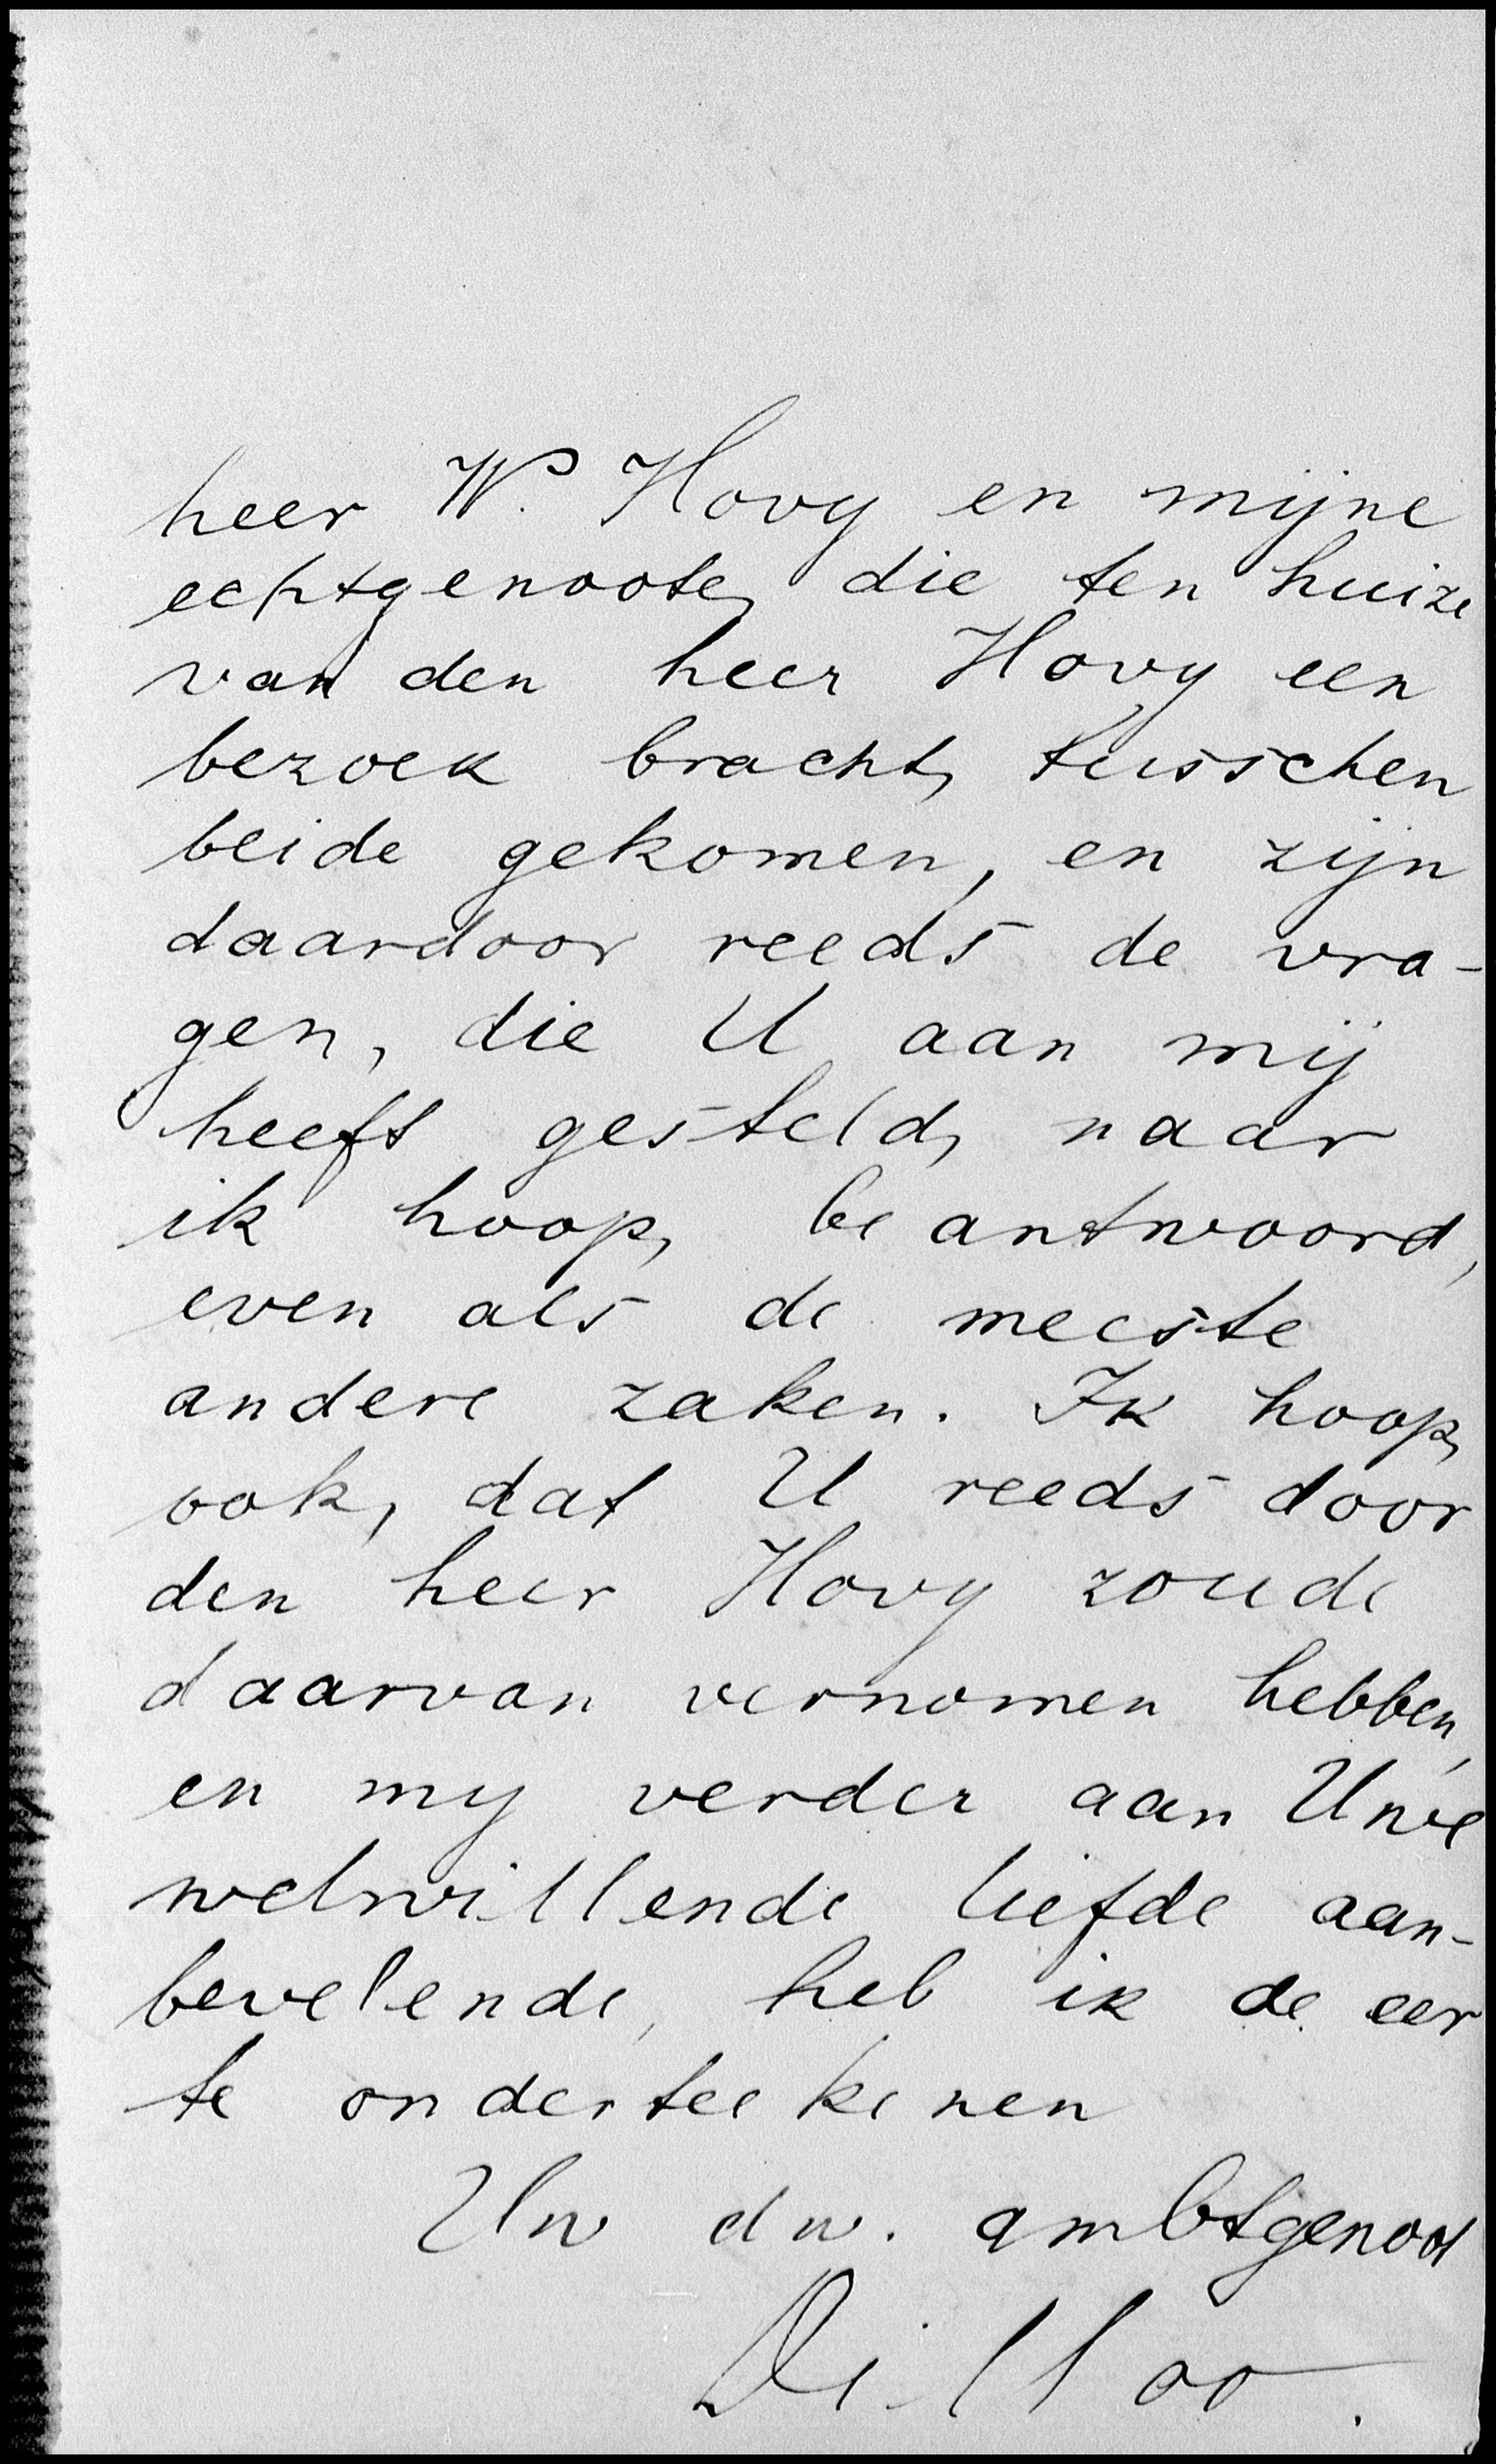 heer W. Hovy en mijne
echtgenoote, die ten huize
van den heer Hovy een
bezoek bracht, tusschen
beide gekomen, en zijn
daardoor reeds de vra-
gen, die U aan mij
heeft gesteld, naar
ik hoop, beantwoord,
even als de meeste
andere zaken. Ik hoop,
ook, dat U reeds door
den heer Hovy zoude
daarvan vernomen hebben,
en my verder aan Uwe
welwillende liefde aan-
bevelende, heb ik de eer
te onderteekenen
Uw dw. ambtgenoot
Dilloo.